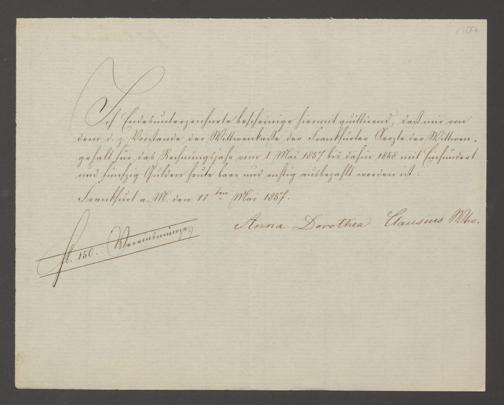 Ich Endesunterzeichnete bescheinige hiermit quittirend, daß mir von
dem d. z. Vorstande der Wittwenkasse der Frankfurter Aerzte der Wittwen-
gehalt für das Rechnungsjahr vom 1 Mai 1857 bis dahin 1858 mit Einhundert
und fünfzig Gulden heute baar und richtig ausbezahlt worden ist.
Frankfurt a. M. den 11ten Mai 1857.
Anna Dorothea Clausius Wtw.
fl. 150. Vereinsmünze